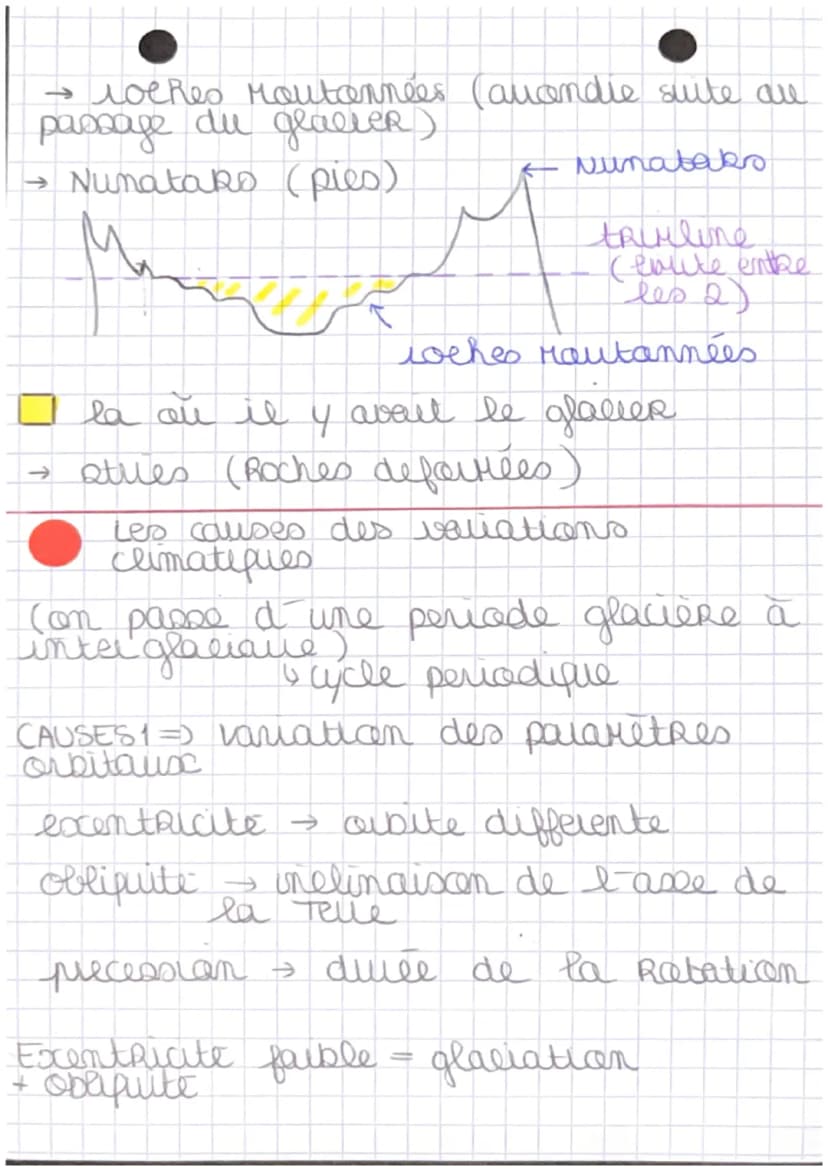 → roches moutonnées (arrondie suite au
passage du glacier)
→ Nunataks (pics)
← Nunataks
trimline
(limite entre
les 2)
roches moutonnées
la où il y avait le glacier
→ stries (Roches deformées)
Les causes des variations
climatiques
(on passe d'une periode glacière à
interglaciaire)
↳ cycle periodique
CAUSES 1 => variation des paramètres
orbitaux
excentricité → orbite differente
obliquité → inclinaison de l'axe de
la Terre
precession → durée de la Rotation
Excentricité faible = glaciation
+ obliquité